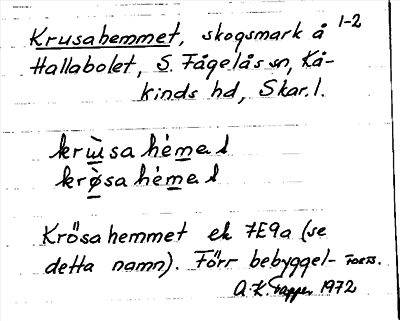 1-2
Krusahemmet, skogsmark å
Hallabolet, S. Fågelås sn, Kå-
kinds hd, Skar. l.
krùsa hémet
krø̀sa hémet
Krösahemmet ek 7E9a (se
detta namn). Förr bebyggel- FORTS.
A.K. 1972